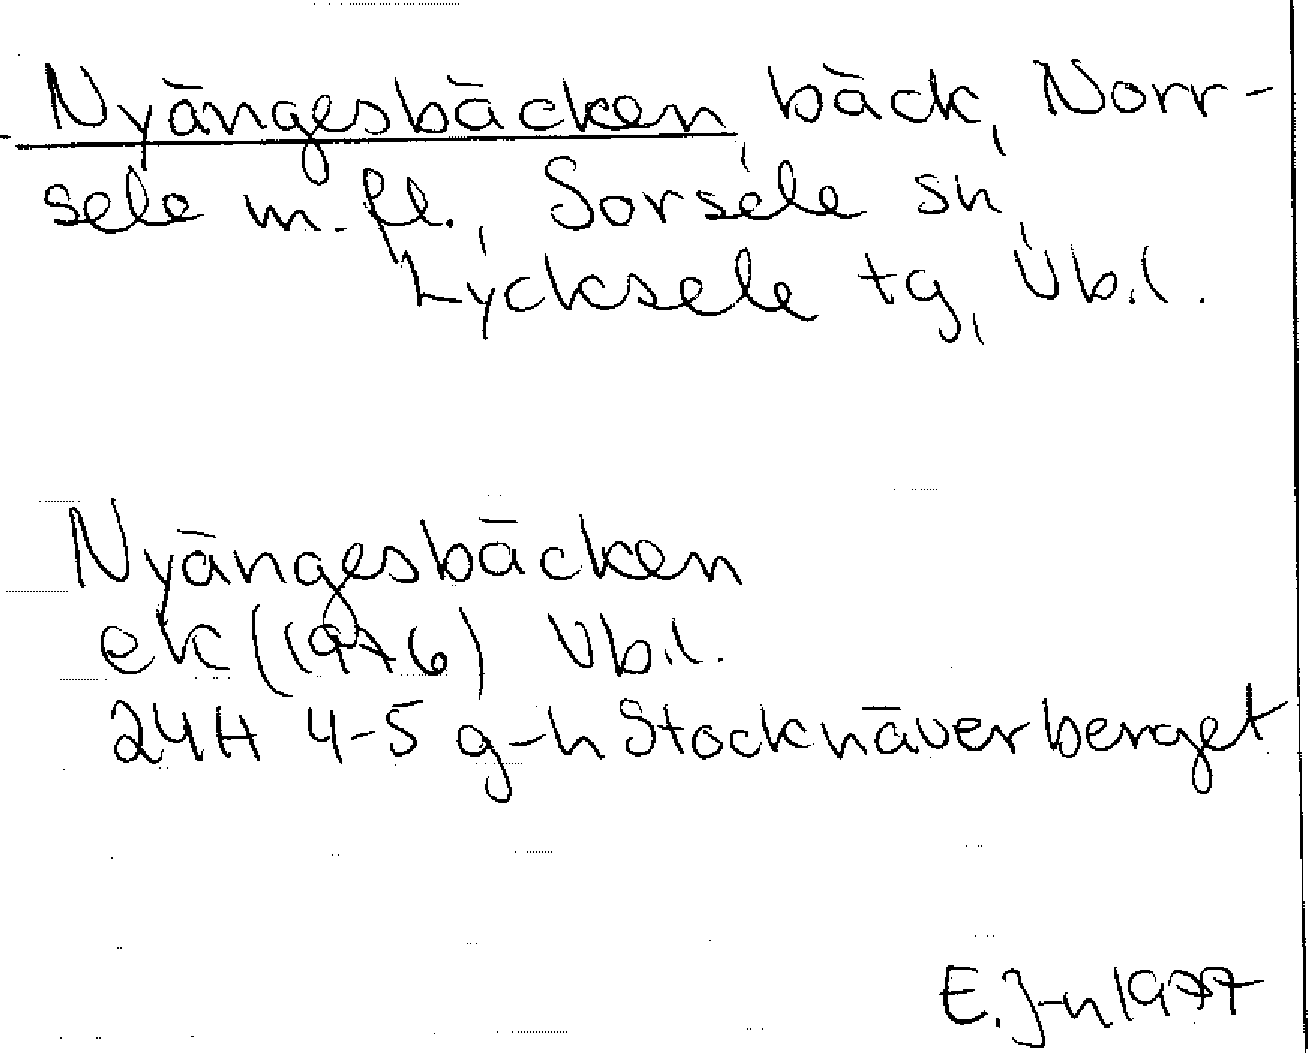 Nyängesbäcken, bäck, Norr-
sele m. fl., Sorsele sn,
Lycksele tg, Vb.l.
Nyängesbäcken
ek (1976) Vb.l.
24H 4-5 g-h Stocknäverberget
E. J-n 1977